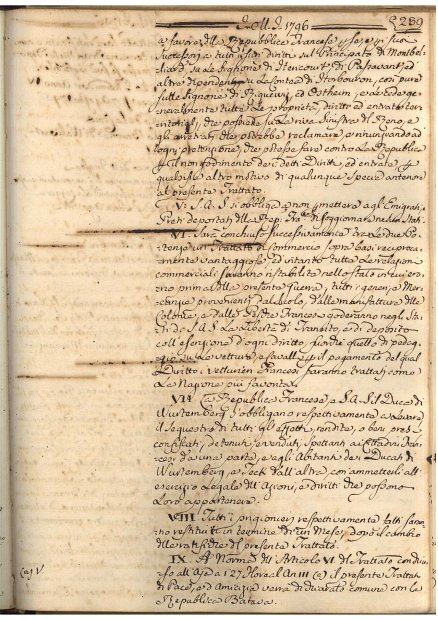 1796
a favore della Repubblica Francese
Successori a tutti i suoi diritti sul Principato di Montbel-
liard, su le Signorie di
altre dipendenti, su la Contea di Horbourg, con pure
sulle Signorie di Riquewir, ed Ostheim, e le cede ge-
neralmente tutte le proprietà, diritti ed entrate terri-
toriali, che possiede su la riva sinistra del Reno, e
gli arretrati, che potrebbe reclamare, rinunziando ad
ogni pretenzione, che potesse fare contro la Repubblica
il non godimento de i detti Diritti, ed entrate, e
qualsisia altro motivo di qualunque specie anteriore
al presente Trattato.
V. S.A.S. si obbliga non permettere agli Emigrati,
Preti deportati della Rep. di soggiornare nelli Stati
VI. Sarà conchiuso successivamente tra le due Po-
tenze un Trattato di Commercio sopra basi reciproca-
mente vantaggiose, ed intanto tutte le relazioni
commerciali saranno ristabilite nello stato in cui era-
no prima della presente guerra, tutti i generi, e Mer-
canzie provenienti dal suolo, dalle manifatture, dalle
Colonie, e dalle Francesi goderanno negli Sta-
ti di S.A.S. la libertà di Transito, e di deposito
coll'esenzione d'ogni diritto, fuorchè quello di pedag-
gio su le vetture, e cavalli, il pagamento del qual
Diritto i vetturieri Francesi saranno trattati come
la Nazione più favorita.
VII. La Repubblica Francese, e S.A.S. il Duca di
Wurtemberg s'obbligano respettivamente a levare
il sequestro di tutti gli effetti, rendite, o beni presi
confiscati, detenuti, e venduti, spettanti ai Cittadini Fran-
cesi da una parte, e agli Abitanti dei Ducati di
Wurtemberg, e Teck dall'altra, con ammetterli all'
esercizio legale dell'azioni, e diritti che possono
loro appartenere.
VIII. Tutti i prigionieri respettivamente fatti saran-
no restituiti in termine di un Mese, dopo il cambio
delle ratifiche del presente Trattato.
IX. A Norma dell'Articolo VI del Trattato conclu-
so all'Aja a 27 Floreal An. III il presente Trattato
di Pace, ed Amicizia verrà dichiarato comune con la
Repubblica Batava.